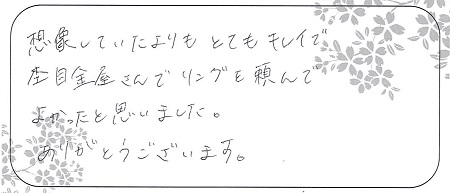 想像していたよりも とてもキレイで
杢目金屋さんで リングを頼んで
よかったと思いました。
ありがとうございます。